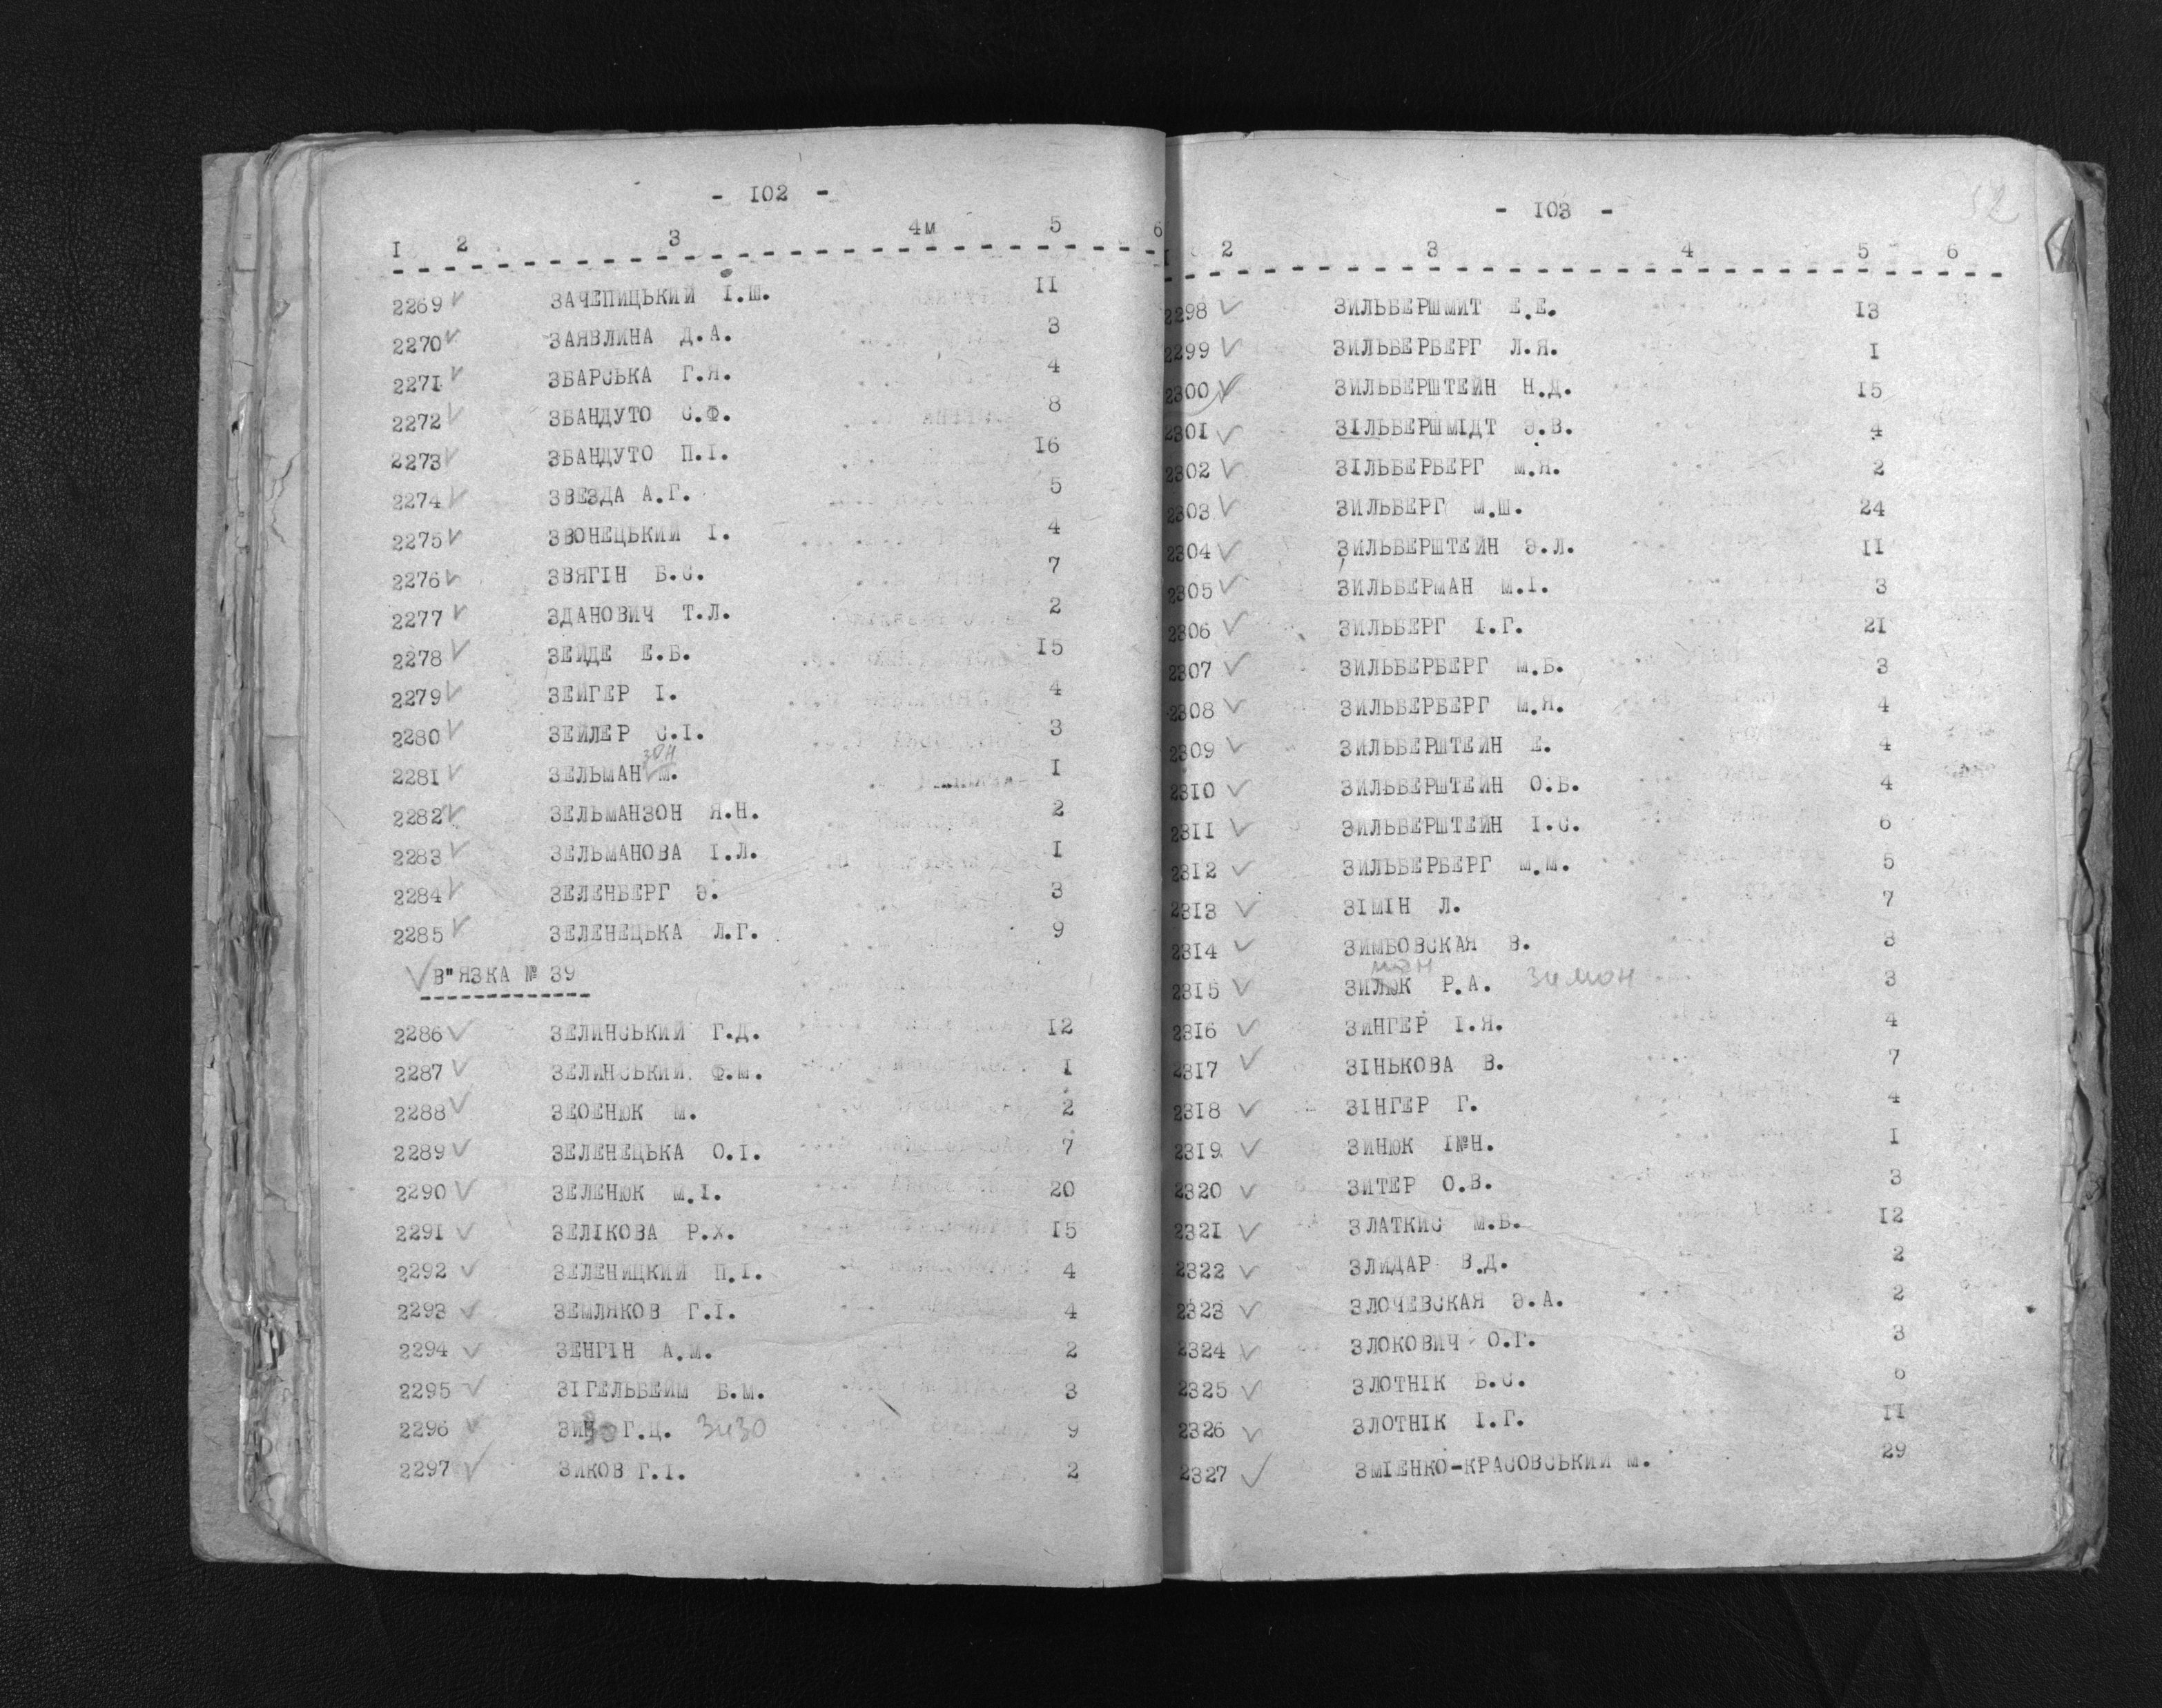 - 102 -
I 2 3 4м 5 6
2269 ЗАЧЕПИЦЬКИЙ І.Ш. 11
2270 ЗАЯВЛИНА Д.А. 3
2271 ЗБАРСЬКА Г.Я. 4
2272 ЗБАНДУТО С.Ф. 8
2273 ЗБАНДУТО П.І. 16
2274 ЗВЕЗДА А.Г. 5
2275 ЗВОНЕЦЬКИЙ І. 4
2276 ЗВЯГІН Б.С. 7
2277 ЗДАНОВИЧ Т.Л. 2
2278 ЗЕЙДЕ Е.Б. 15
2279 ЗЕЙГЕР І. 4
2280 ЗЕЙЛЕР С.І. 3
2281 ЗЕЛЬМАН зон М. 1
2282 ЗЕЛЬМАНЗОН Я.Н. 2
2283 ЗЕЛЬМАНОВА І.Л. 1
2284 ЗЕЛЕНБЕРГ Э. 3
2285 ЗЕЛЕНЕЦЬКА Л.Г. 9
В"ЯЗКА № 39
2286 ЗЕЛИНСЬКИЙ Г.Д. 12
2287 ЗЕЛИНСЬКИЙ Ф.М. 1
2288 ЗЕОЕНЮК М. 2
2289 ЗЕЛЕНЕЦЬКА О.І. 7
2290 ЗЕЛЕНЮК М.І. 20
2291 ЗЕЛІКОВА Р.Х. 15
2292 ЗЕЛЕНИЦКИЙ П.І. 4
2293 ЗЕМЛЯКОВ Г.І. 4
2294 ЗЕНГІН А.М. 2
2295 ЗІГЕЛЬБЕЙМ Б.М. 3
2296 ЗИ Г.Ц. Зизо 9
2297 ЗИКОВ Г.І. 2
- 103 -
I 2 3 4 5 6
2298 ЗИЛЬБЕРШМИТ Е.Е. 13
2299 ЗИЛЬБЕРБЕРГ Л.Я. 1
2300 ЗИЛЬБЕРШТЕЙН Н.Д. 15
2301 ЗІЛЬБЕРШМІДТ Э.В. 4
2302 ЗІЛЬБЕРБЕРГ М.Я. 2
2303 ЗИЛЬБЕРГ М.Ш. 24
2304 ЗИЛЬБЕРШТЕЙН Э.Л. 11
2305 ЗИЛЬБЕРМАН М.І. 3
2306 ЗИЛЬБЕРГ І.Г. 21
2307 ЗИЛЬБЕРБЕРГ М.Б. 3
2308 ЗИЛЬБЕРБЕРГ М.Я. 4
2309 ЗИЛЬБЕРШТЕЙН Е. 4
2310 ЗИЛЬБЕРШТЕЙН О.Б. 4
2311 ЗИЛЬБЕРШТЕЙН І.С. 6
2312 ЗИЛЬБЕРБЕРГ М.М. 5
2313 ЗІМІН Л. 7
2314 ЗИМБОВСКАЯ В. 3
2315 ЗИЛЮК мон Р.А. Зимон 3
2316 ЗИНГЕР І.Я. 4
2317 ЗІНЬКОВА В. 7
2318 ЗІНГЕР Г. 4
2319 ЗИНЮК І№Н. 1
2320 ЗИТЕР О.В. 3
2321 ЗЛАТКИС М.Б. 12
2322 ЗЛИДАР В.Д. 2
2323 ЗЛОЧЕВСКАЯ Э.А. 2
2324 ЗЛОКОВИЧ О.Г. 3
2325 ЗЛОТНІК Б.С. 6
2326 ЗЛОТНІК І.Г. 11
2327 ЗМІЕНКО-КРАСОВСЬКИЙ М. 29